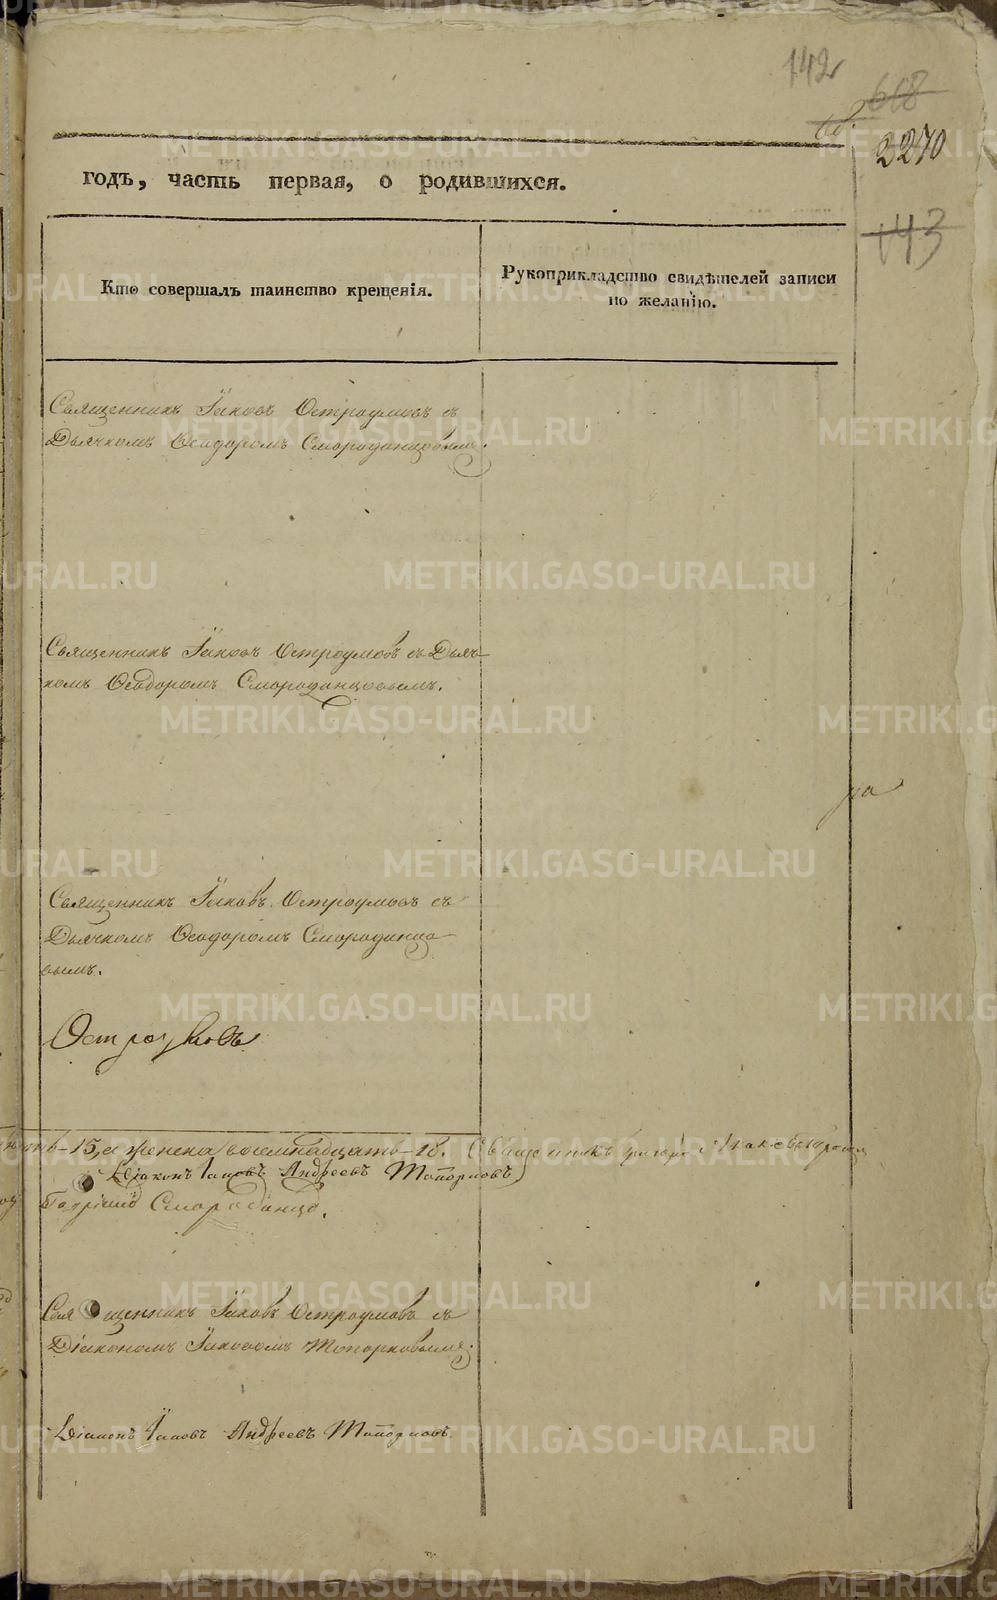 142
618
2270
годъ, часть первая, о родившихся.
143
Кто совершалъ таинство крещенія.
Рукоприкладство свидѣтелей записи
по желанію.
Священникъ Іаковъ Остроумовъ съ
Дьячкомъ Ѳеодоромъ Смородинцовымъ.
Священникъ Іаковъ Остроумовъ съ Дьяч-
комъ Ѳеодоромъ Смородинцовымъ.
ра
Священникъ Іаковъ Остроумовъ съ
Дьячкомъ Ѳеодоромъ Смородинцо-
вымъ.
Остроумовъ
15, а женска восемнадцать - 18. Священникъ
Діаконъ Іаковъ Андреевъ Топорковъ
Смородинцо.
Священникъ Іаковъ Остроумовъ съ
Діакономъ Іаковомъ Топорковымъ.
Діаконъ Іаковъ Андреевъ Топорковъ.
METRIKI.GASO-URAL.RU